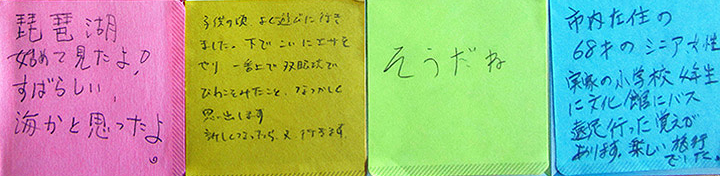 琵琶湖
始めて見たよ!
すばらしい、
海かと思ったよ。
子供の頃 よく遊びに行き
ました。下で こいにエサを
やり 一番上で 双眼鏡で
びわこをみたこと、なつかしく
思い出します
新しくなってから、又 行きます。
そうだね
市内在住の
68才の シニア女性
実家の小学校 4年生
に文化館にバス
遠足行った覚えが
あります。楽しい旅行
でした。